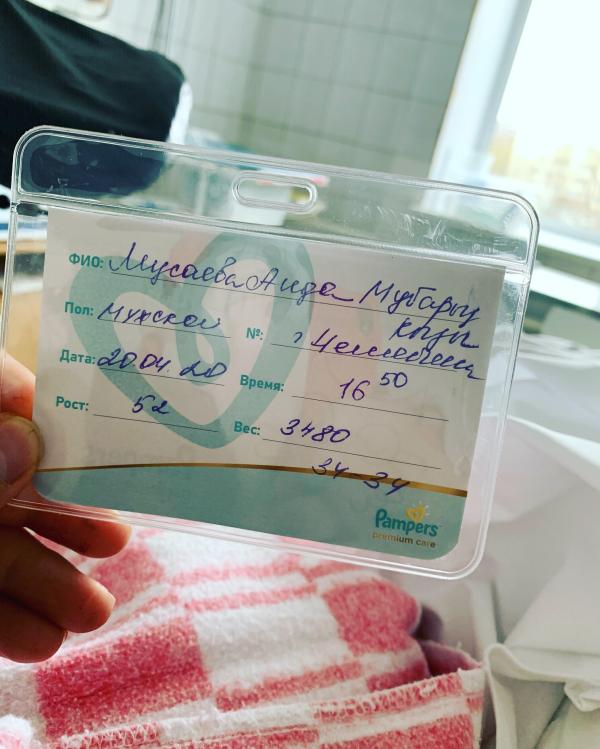 ФИО: Мусаева Аида Мубариз
кызы
Пол: мужской №: г Челябинск
Дата: 20.04.20 Время: 16 50
Рост: 52 Вес: 3480
34-34
Pampers
premium care